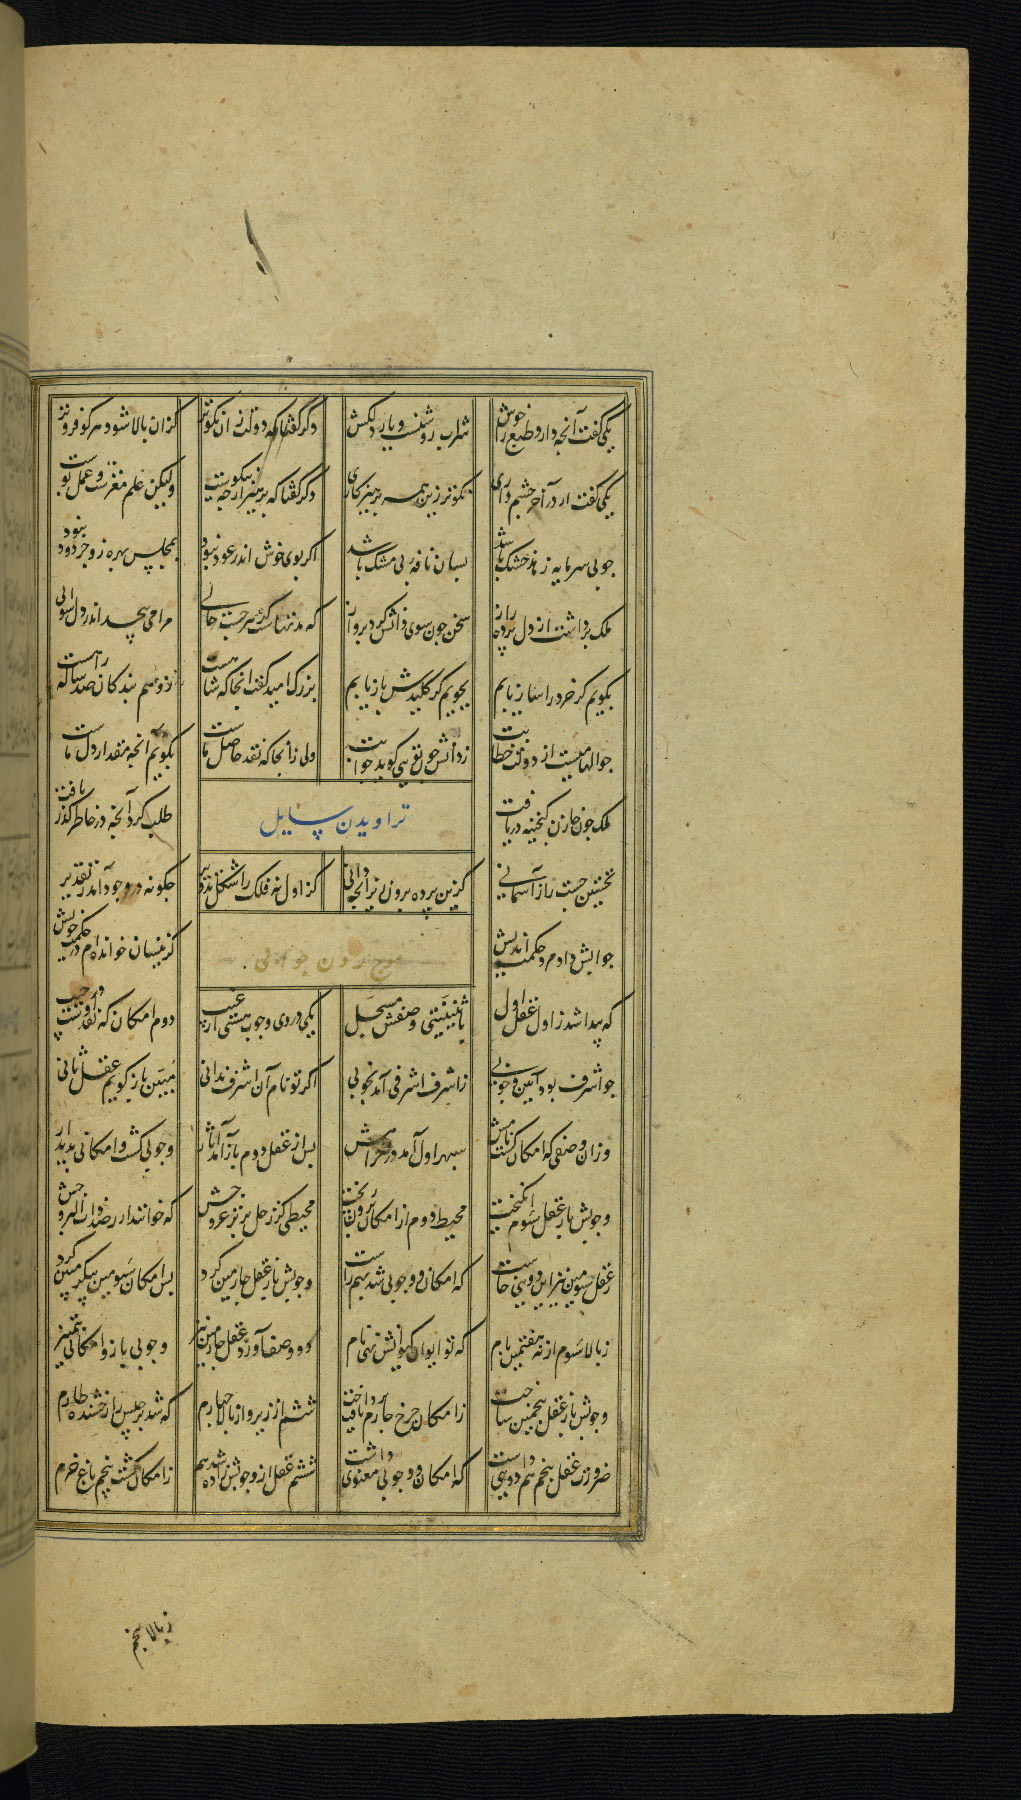 یکی گفت آنچه دارد طبع را خوش شراب روشنست و یار دلکش دگر گفتا که دولت زان نکوتر کزان بالا شود هر کو فروتر
یکی گفت ار در آخر چشم داری نکوتر زین همه پرهیزکاری دگر گفتا که پرهیز ارچه نیکوست ولیکن علم مغزست و عمل پوست
چو بی سرمایه زاهد خشک باشد بسان نافهٔ بی مشک باشد اگر بوی خوش اندر عود نبود بمجلس بهره زو جز دود نبود
ملک برداشت از دل پردهٔ راز سخن چون سوی دانش کرد پرواز که مدتهاست کز هر جست حالی مرا می پیچد اندر دل سؤالی
بگویم گر خرد را ساز یابم بجویم گر کلیدش باز یابم بزرگ امید گفت انجا که شاهست نه وسم بندگان صد ساله راهست
چو الهامیست از دولت خطابت ز دانش چون تویی گوید جوابت ولی زانجا که نقد حاصل ماست بگویم آنچه مقدار دل ماست
ملک چون خازن گنجینه دریافت طلب کرد آنچه در خاطر گذر یافت
تراویدن سایل
نخستین جست راز آسمانی کزین پرده برون نیز آنچه دانی کز اول نه فلک را شکل تدویر چگونه در وجود آمد ز تقدیر
جوابش داد مرد حکمت اندیش کزینسان خوانده ام در حکمت خویش
موج زدن جوابی
که پیدا شد ز اول عقل اول باثنینیتی وصفش مسجل یکی در وی وجوب هستی از غیب دوم امکان که نقد اوست در جیب
چو اشرف بود آیین وجوبی ز اشرف اشرفی آمد بخوبی اگر تو نام آن اشرف ندانی مبین باز گویم عقل ثانی
وزان وصفی که امکان گشت نامش سپهر اول آمد در خرامش پس از عقل دوم باز آمد آثار وجوبی گشت و امکانی پدیدار
وجوبش باز عقل سوم انگیخت محیط دوم از امکان برون ریخت محیطی کز زحل برتر زد عرش که خوانند از رصد ذات البروجش
ز عقل سومین نیز این دویی خاست که امکان و وجوبی شد بهم راست وجوبش باز عقل چارمین کرد پس امکان سومین پیکر مبین کرد
ز بالا سوم از نه هفتمین بام که تو ایوان کیوانش نهی نام دو وصف آورد عقل چارمین نیز وجوبی باز و امکانی بتمییز
وجوبش باز عقل پنجمین ساخت ز امکان چرخ چارم یافت پرداخت ششم از زیر و از بالا چهارم که شد برجیس را رخشنده طارم
ضرورت عقل پنجم هم دویی داشت که امکان و وجوبی معنوی داشت ششم عقل از وجوبش زاده شد هم ز امکان گشت پنجم باغ خرم
ز بالا پنجم